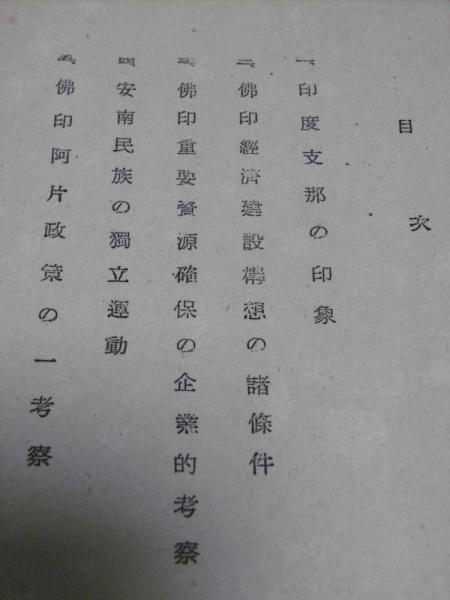 目次
一、印度支那の印象
二、佛印經濟建設構想の諸條件
三、佛印重要資源確保の企業的考察
四、安南民族の獨立運動
五、佛印阿片政策の一考察